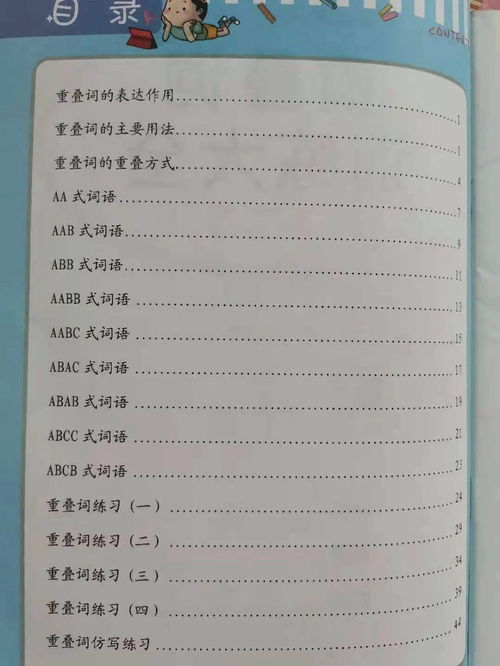 目录
CONTENT
重叠词的表达作用 1
重叠词的主要用法 1
重叠词的重叠方式 4
AA 式词语 7
AAB 式词语 9
ABB 式词语 11
AABB 式词语 13
AABC 式词语 15
ABAC 式词语 17
ABAB 式词语 19
ABCC 式词语 21
ABCB 式词语 23
重叠词练习（一） 24
重叠词练习（二） 29
重叠词练习（三） 34
重叠词练习（四） 39
重叠词仿写练习 44